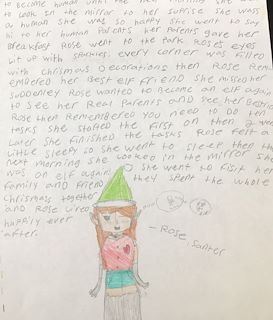 to become human until the next morning she
to look in the mirror to her suprise she was
a human she was so happy she went to say
hi to her human Parents her Parents gave her
Breakfast Rose went to the Park Roses eyes
lit up with sparkles every corner was filled
with chrismas Decorations then Rose Rem
embered her Best elf friend she missed her
suddenley Rose wanted to become an elf again
to see her Real Parents and see her Bestie
Rose then Remembered you need to do ten
tasks she started the first on then 2 weeks
Later she finished the tasks Rose felt a
little sleepy so she went to sleep then the
next morning she looked in the mirror she
was an elf again she went to fisit her
family and friend they spent the whole
Chrismass together
and Rose lived
happily ever
after.
- Rose, Santer